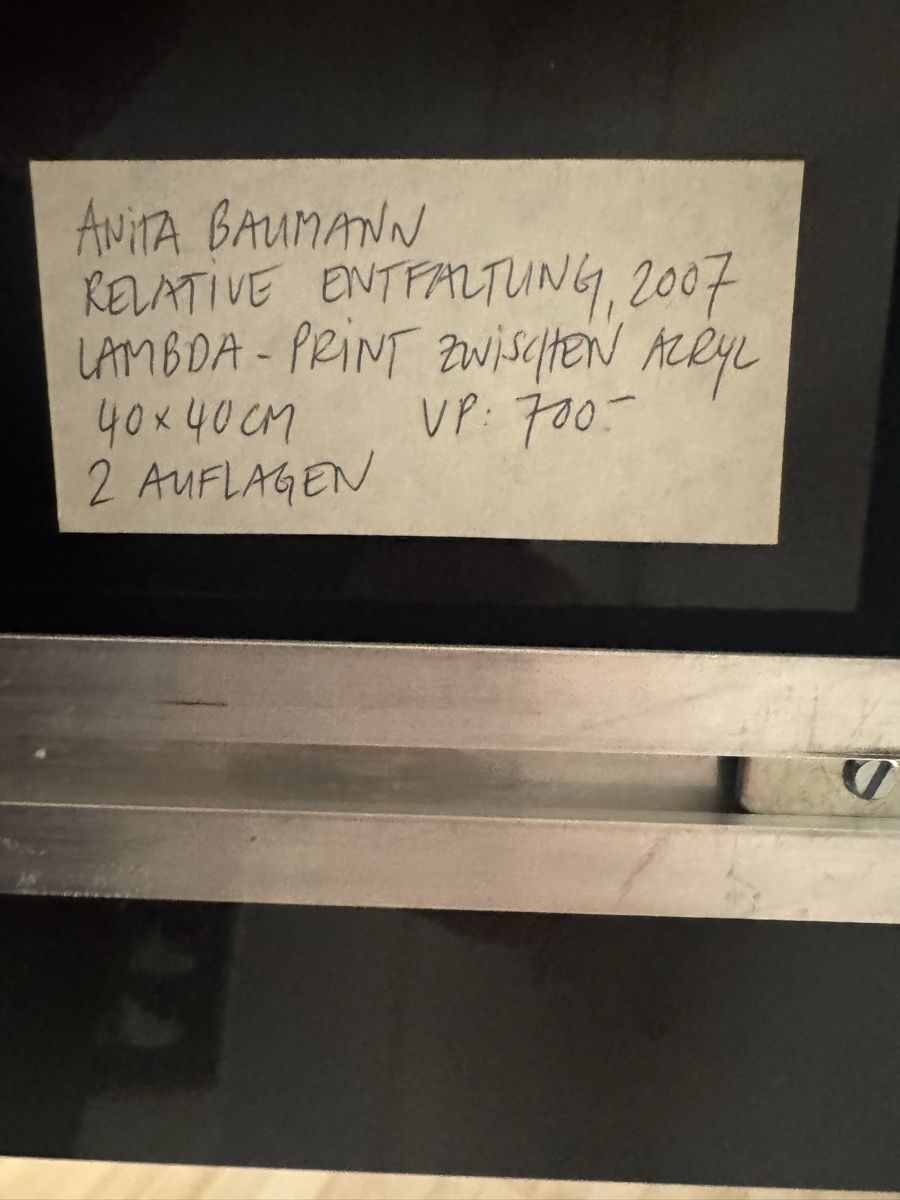 ANITA BAUMANN
RELATIVE ENTFALTUNG, 2007
LAMBDA - PRINT ZWISCHEN ACRYL
40 x 40 CM VP: 700.-
2 AUFLAGEN